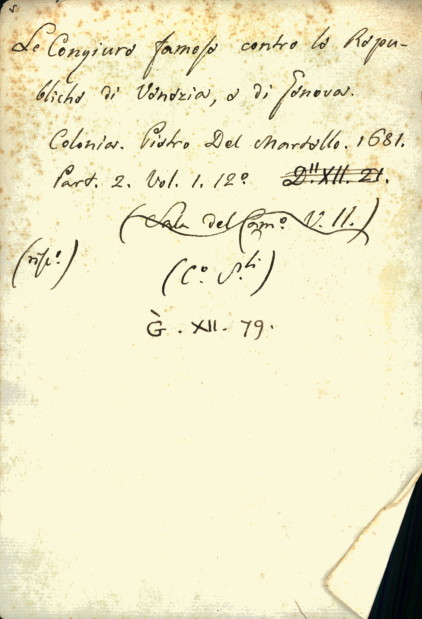 Le Congiure famose contro le Repu-
bliche di Venezia, e di Genova.
Colonia. Pietro Del Martello. 1681.
Part. 2. Vol. 1. 12º D.II XII. 21.
(Sala del Cam.º V. II.)
(ris.º)
(C.º S.ti)
G̀. XII. 79.